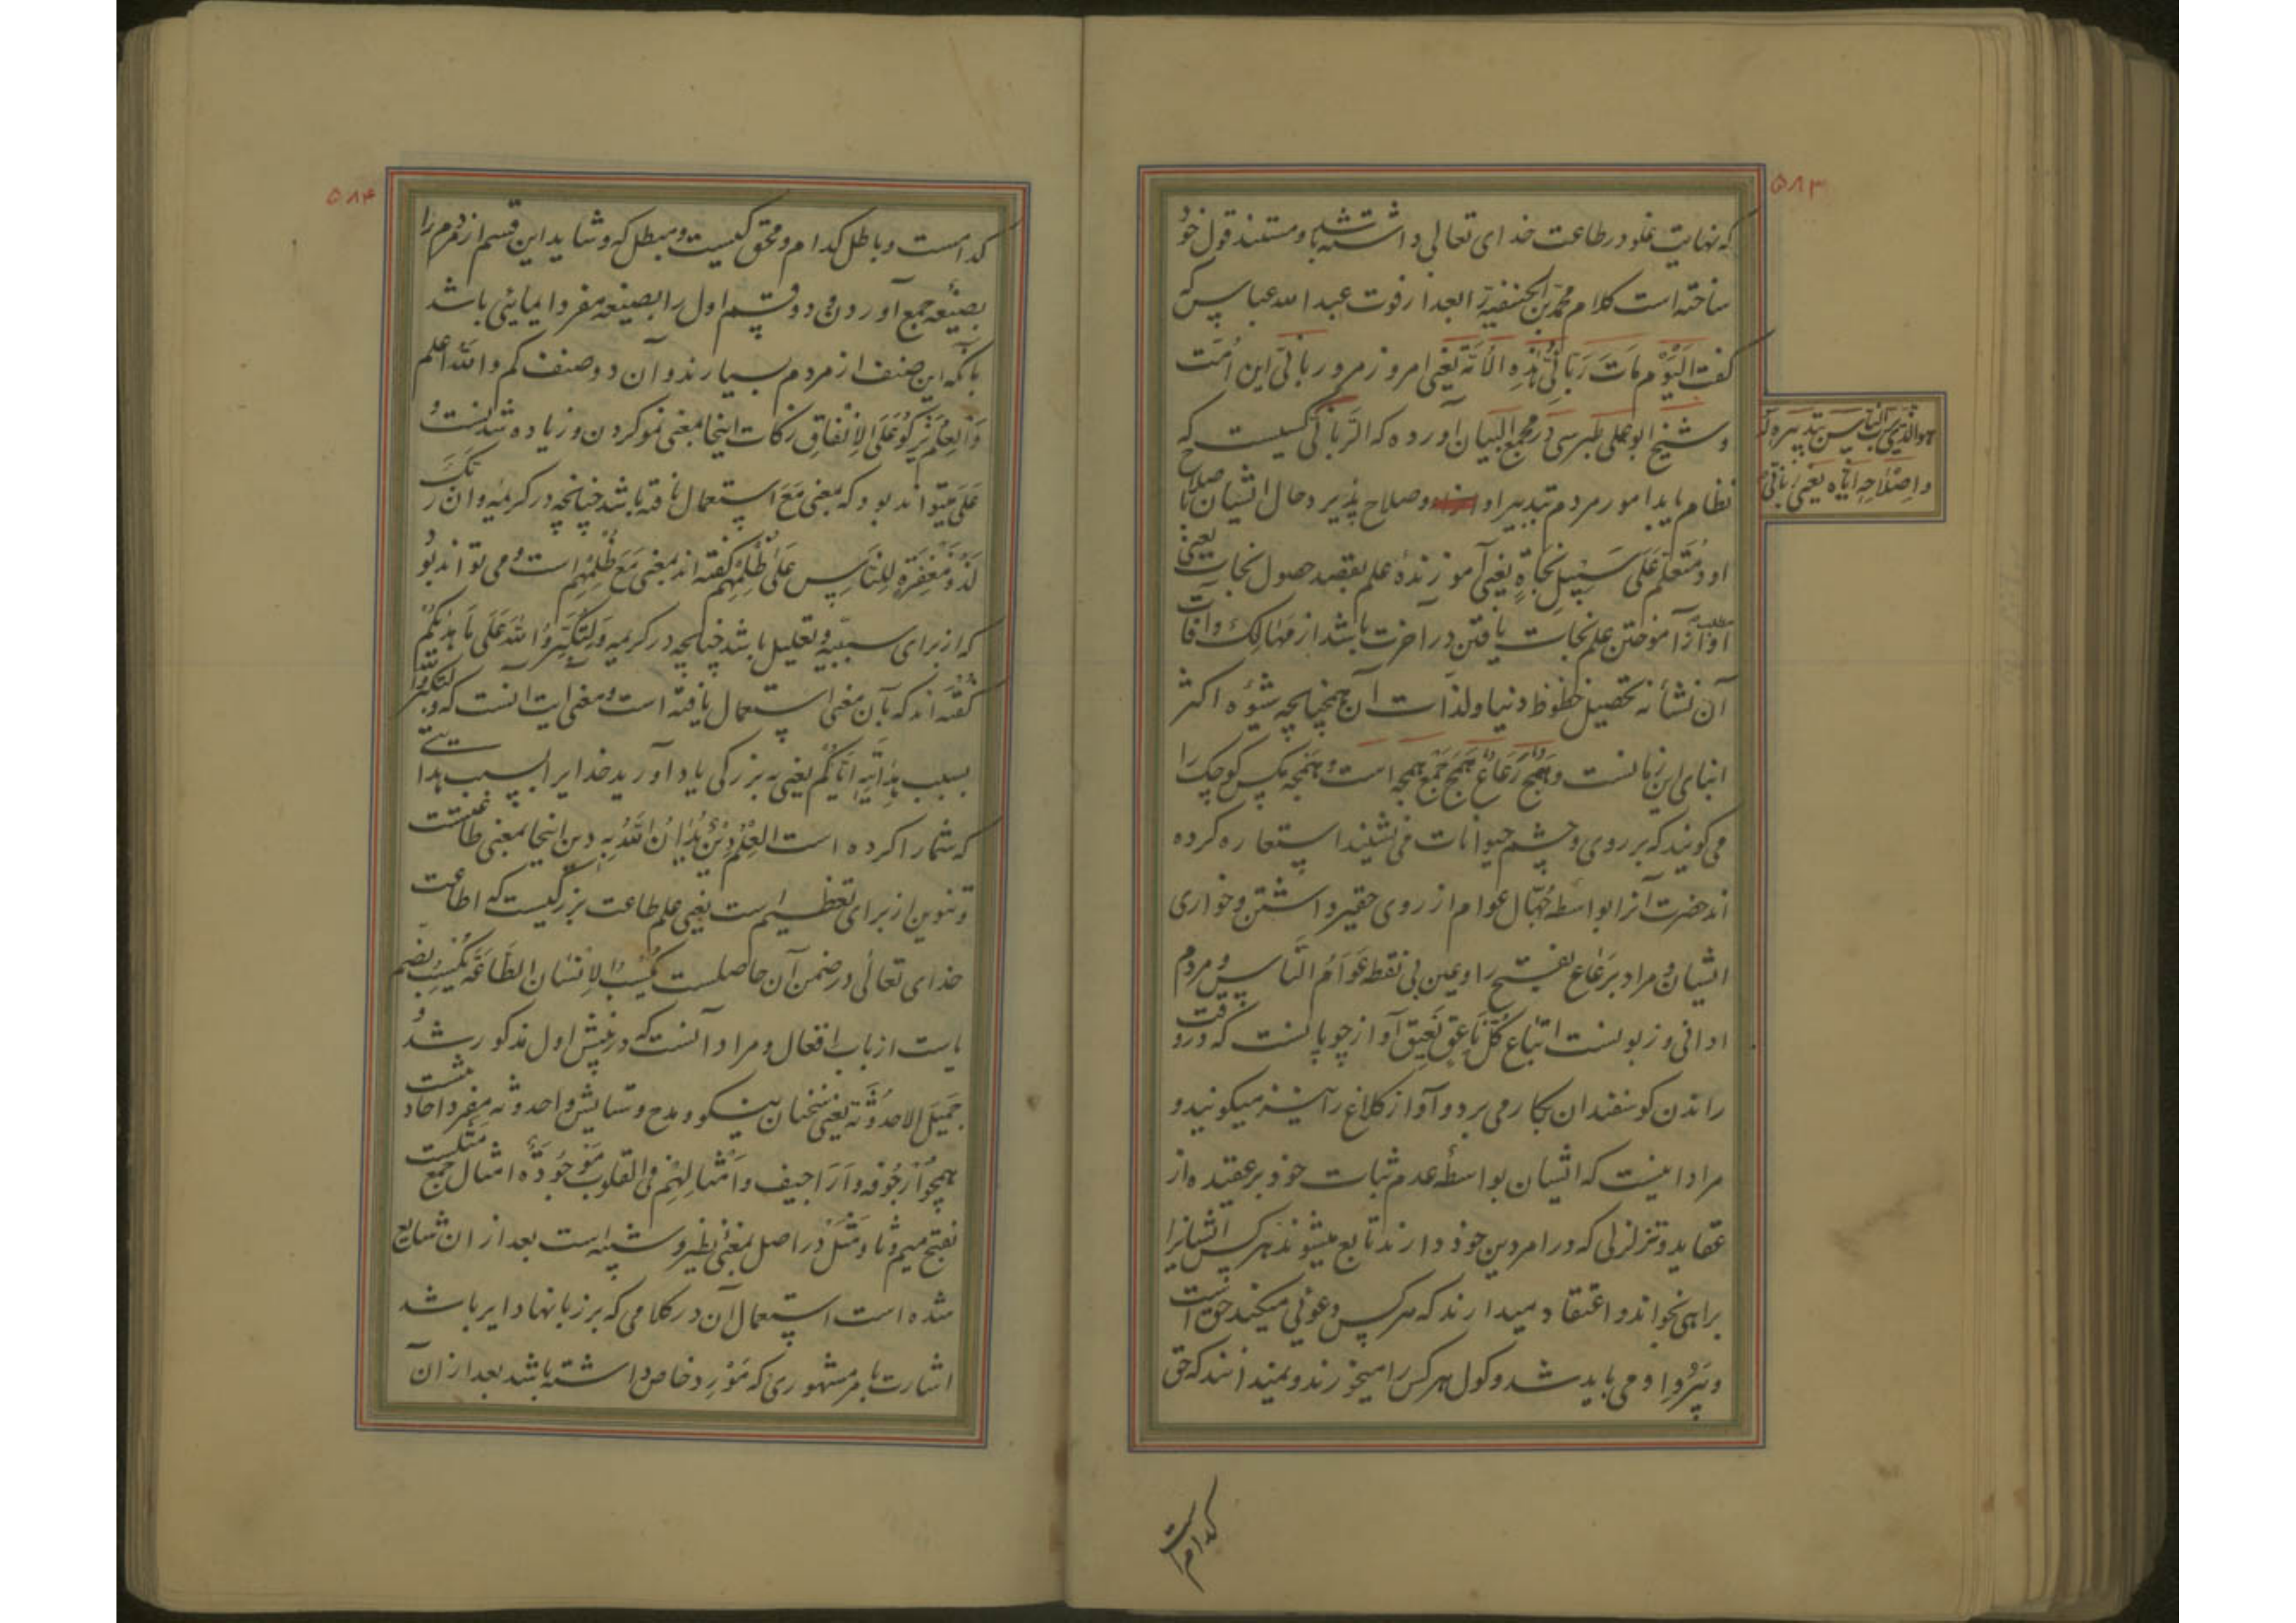 ۵۸۳
که نهایت غلو در طاعت خدای تعالی داشته باشد و مستند قول خود
ساخته است کلام محمد بن الحنفیة العبد از فوت عبد الله عباس که
گفت اَلْیَوْمَ مَاتَ رَبَّانِیُّ هٰذِهِ الْاُمَّة یعنی امروز مرد ربانی این اُمَت
و شیخ ابو علی طبرسی در مجمع البیان آورده که الرَّبانّی کسیست که
هو الذی یرب الناس بتدبیره
واِصْلاحِهِ اِیّاه یعنی ربانی
نظام یابد امور مردم بتدبیر او و صلاح پذیر دحال ایشان با صلاح
او وَمُتَعَلِّم عَلَی سَبِیلِ نَجَاةٍ یعنی آموزندهٔ علم بقصد حصول نجات یعنی
او از آموختن علم نجات یافتن در آخرت باشد از مهالک و آفات
آن نشأنه تحصیل حظوظ دنیا و لذات آن همچنانچه شیوه اکثر
ابنای این زمانست وَهَمَج رَعَاع هَمَج جمع همجه است و همجه مکس کوچک را
می کویند که بر روی و چشم حیوانات می نشیند استعاره کرده
اند حضرت آنرا بواسطه جُهّال عوام از روی حقیر داشتن و خواری
ایشان و مراد برَعَاع بفتح را و عین بی نقطه عَوَامُ النَّاس و مردم
ادانی و زبونست اتباع کُلّ نَاعِق نَعِیق آواز چوپانست که در وقت
راندن کوسفندان بکار می برد و آواز کلاغ را نیز میکویند و
مراد اینست که ایشان بواسطهٔ عدم ثبات خود بر عقیده از
عقاید و تزلزلی که در امر دین خود دارند تابع میشوند هر کس ایشانرا
براهی نجواند و اعتقاد میدارند که هر کس دعوئی میکند حق است
و پَیْرُو او می باید شد و کول هر کس را میخورند و نمیدانند که حق
کدام است
۵۸۴
کدامست و باطل کدام و محق کیست و مبطل که و شاید این قسم از مردم را
بصیغه جمع آوردن و دو قسم اول را بصیغه مفرد ایمایی باشد
بآنکه این صنف از مردم بسیارند و آن دو صنف کم والله اعلم
وَالْعِلْمُ یَزْکُوْ عَلَی الاِنْفَاقِ زکات اینجا بمعنی نمو کردن و زیاده شدنست و
عَلَی میتواند بود که بمعنی مَعَ استعمال یافته باشد چنانچه در کریمه و ان رَبَّکَ
لَذُو مَغْفِرَةٍ لِلنَّاسِ عَلَی ظُلْمِهِم کفته اند بمعنی مَعَ ظُلْمِهِم است و می تواند بود
که از برای سببیه و تعلیل باشد چنانچه در کریمه وَلِتُکَبِّرُوا اللهَ عَلَی مَا هَدٰیکُمْ
کفته اند که بآن معنی استعمال یافته است و معنی ایت آنست که و لتکبروا الله
بسبب هِدَایَتِهِ اِیَّاکُمْ یعنی به بزرکی یاد آورید خدایرا بسبب هدایتی
که شما را کرده است العِلْمُ دِیْنٌ یُدَانُ اللهُ بِهِ دین اینجا بمعنی طاعتست
و تنوین از برای تعظیم است یعنی علم طاعت بزرکیست که اطاعت
خدای تعالٰی در ضمن آن حاصلست یُکْسِبُ الاِنْسَانَ الطَّاعَةَ یُکْسِبُ بضم
یاست از باب افعال و مراد آنست که در پیش اول مذکور شد و
جَمِیْلَ الاحْدُوْثَة یعنی سخنان نیکو و مدح و ستایش و احدوثه مفرد احادیثست
همچو اُرْجُوفَه وَ اَرَاجِیف وَ اَمْثَالِهُمْ فِی القلوب مَوْجُودَةٌ امثال جمع مَثَلست
بفتح میم و ثا و مَثَلْ در اصل بمعنی نظیر و شبیه است بعد از ان شایع
شده است استعمال آن در کلامی که بر زبانها دایر باشد
اشارت بامر مشهوری که مَوْرِد خاص داشته باشد بعد از آن